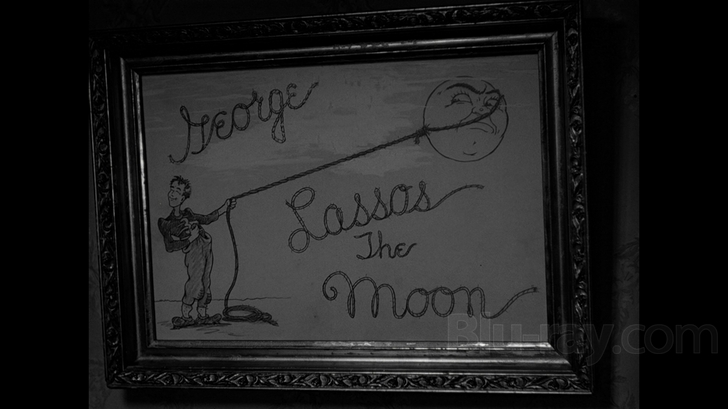 George
Lassos
The
Moon
Blu-ray.com